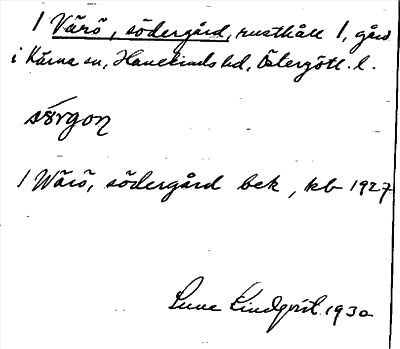 / Värö, södergård, rusthåll 1, gård
i Kärna sn, Hanekinds hd, Östergötl. l.
/ Wärö, södergård bek, kb 1927
Sune Lindqvist 1930